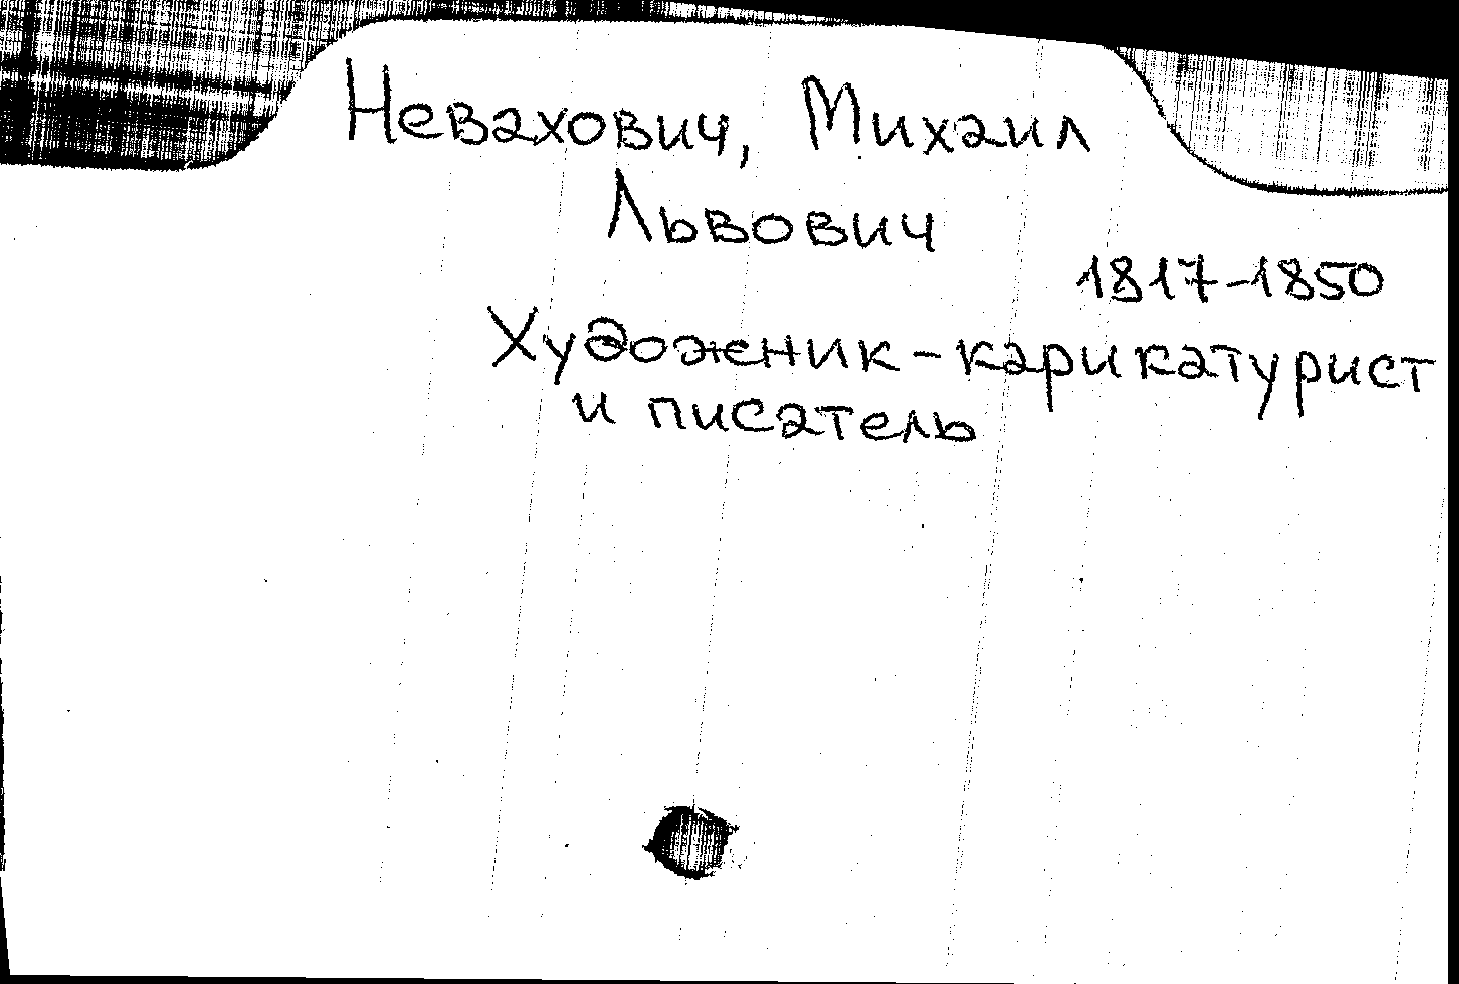 Невахович, Михаил
Львович
1817-1850
Художник-карикатурист
и писатель